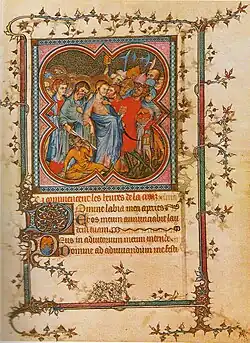 Ci commencent les heures de la croiz
Domine labia mea apries
Et os meum annunciabit lau
dem tuam
Deus in adiutorium meum intende
Domine ad adiuvandum me festi